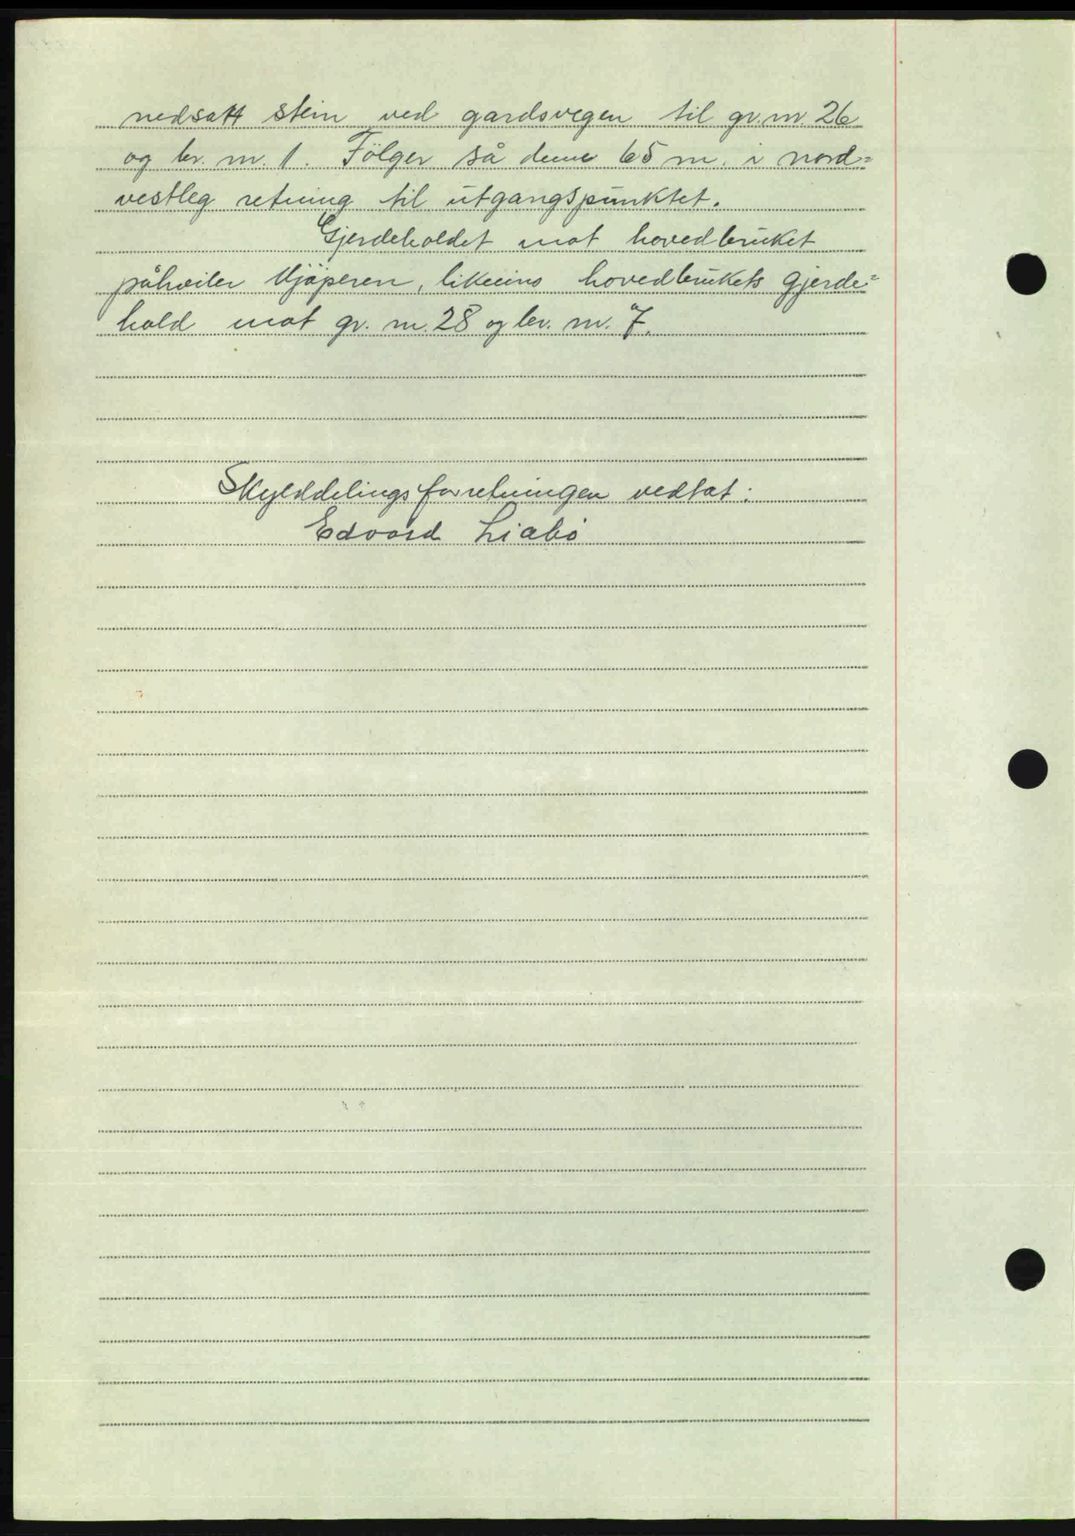 nedsatt stein ved gardsvegen til gr. nr. 26
og br. nr. 1. Fölger så denne 65 m. i nord=
vestleg retning til utgangspunktet.
Gjerdeholdet mot hovedbruket
påhviler kjöperen, likeeins hovedbrukets gjerde=
hold mot gr. nr. 28 og br. nr. 7.
Skylddelingsforretningen vedtat:
Edvard Liabö